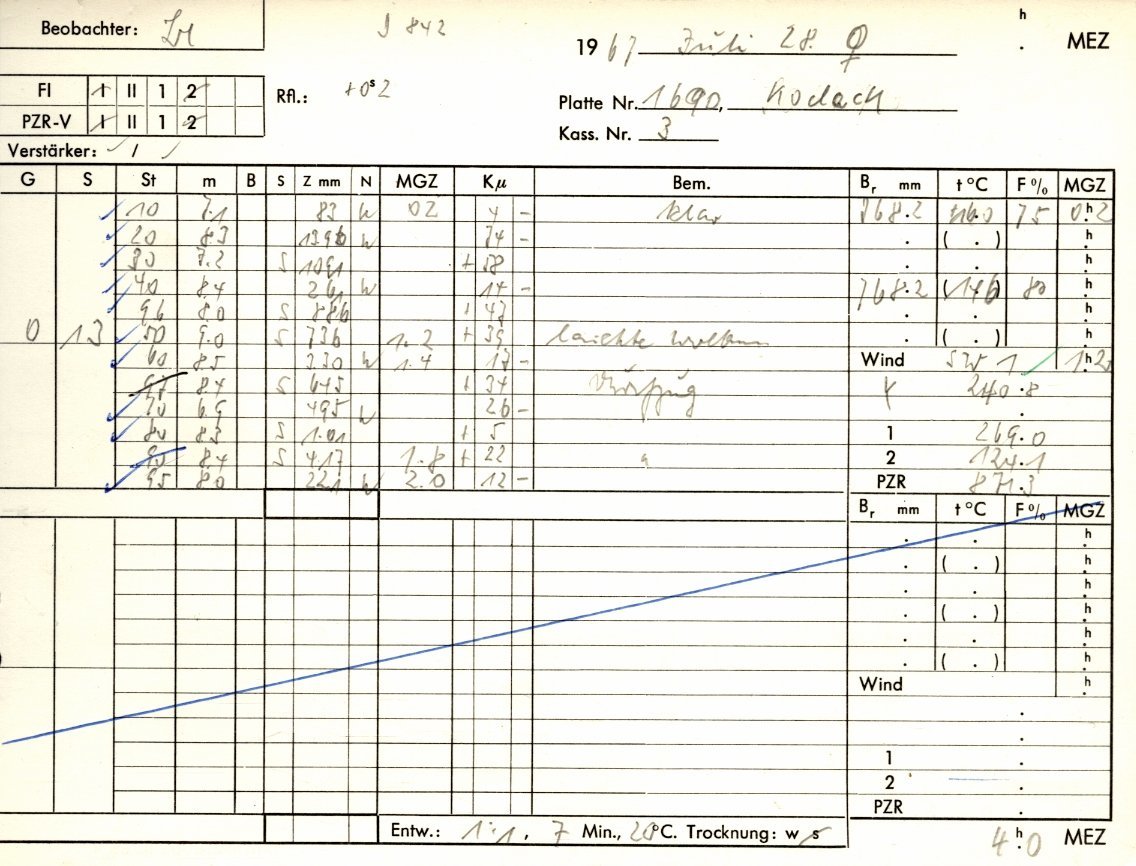 Beobachter:
J 842
h
1967 Juli 28. ♀ . MEZ
FI I II 1 2
Rfl.: +0ˢ2
Platte Nr. 1690, Kodack
PZR-V I II 1 2
Kass. Nr. 3
Verstärker: /
G S St m B S Z mm N MGZ Kμ Bem. Br mm t °C F % MGZ
10 7.1 83 W 02 4 – klar 768.2 16.0 75 0h2
20 8.3 1396 W 74 – . ( . ) h
30 7.2 S 1091 + 58 . . h
40 8.4 261 W 14 – 768.2 (14.6) 80 h
96 8.0 S 886 + 47 . . h
0 13 50 9.0 S 736 1.2 + 39 leichte Wolken . ( . ) h
60 8.5 330 W 1.4 17 – Wind SW 1 1h2
97 8.4 S 645 + 34 240.8
70 6.9 495 W 26 – .
80 8.3 S 101 + 5 1 269.0
90 8.4 S 417 1.8 + 22 2 124.1
95 8.0 221 W 2.0 12 – PZR 871.3
Br mm t °C F % MGZ
. . h
. ( . ) h
. . h
. ( . ) h
. . h
. ( . ) h
Wind h
.
.
1 .
2 .
PZR .
Entw.: 1:1, 7 Min., 20°C. Trocknung: w s
4h0 MEZ